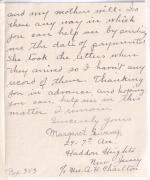 and my mothers will. Is
there any way in which
you can help me by sending
me the date of payments
She took the letters when
they arrived so I havn't any
record of them. Thanking
you in advance, and hoping
you can help me in this
matter I remain
Sincerely yours
Margaret
29 - 7th Ave
Haddon Heights
New Jersey
Box 353
c/o Mrs. A. H. Charlton